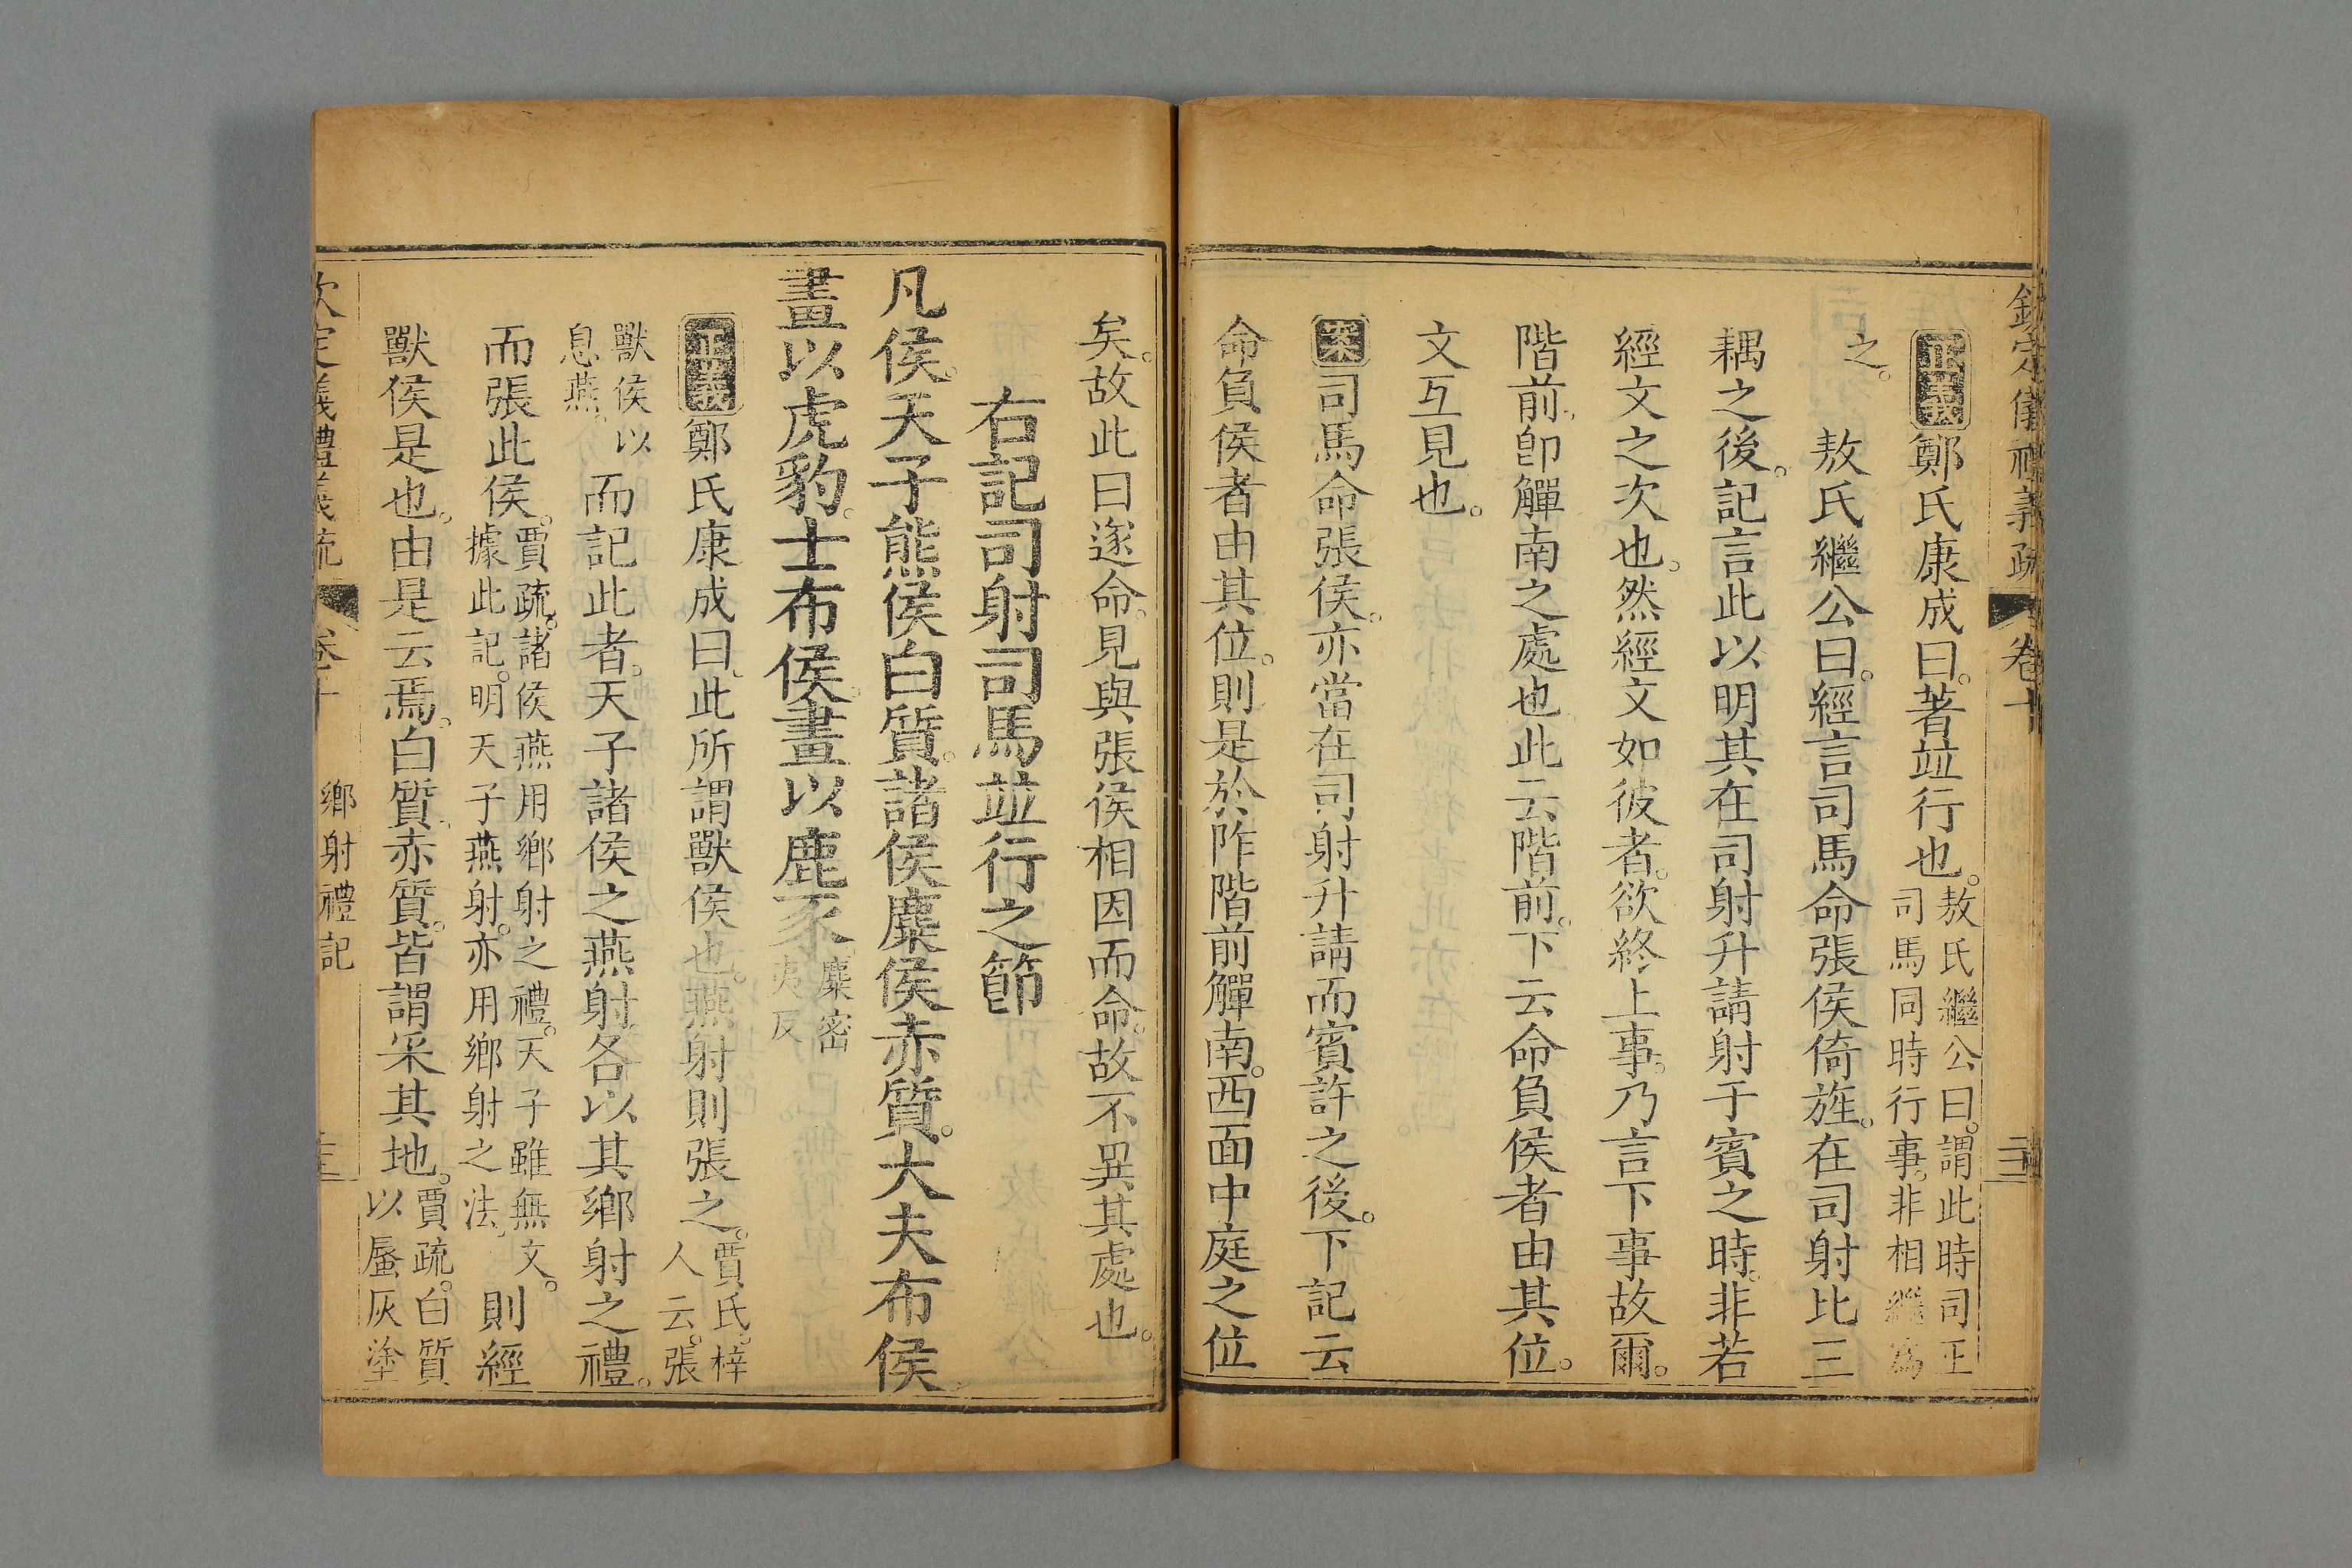 欽定儀禮義疏 卷十
正義鄭氏康成曰。著竝行也。敖氏繼公曰。謂此時司正
司馬同時行事。非相繼爲
之。敖氏繼公曰。經言司馬命張侯倚旌。在司射比三
耦之後。記言此以明其在司射升請射于賓之時。非若
經文之次也。然經文如彼者。欲終上事。乃言下事故爾。
階前。卽觶南之處也此云階前。下云命負侯者由其位。
文互見也。
案司馬命張侯。亦當在司射升請而賓許之後。下記云
命負侯者由其位。則是於阼階前觶南。西面中庭之位
矣。故此曰遂命。見與張侯相因而命。故不異其處也。
右記司射司馬竝行之節
凡侯。天子熊侯白質。諸侯麋侯赤質。大夫布侯
畫以虎豹。士布侯。畫以鹿豕。麋密
夷反
正義鄭氏康成曰。此所謂獸侯也。燕射則張之。賈氏。梓
人云。張
獸侯以
息燕。而記此者。天子諸侯之燕射各以其鄉射之禮。
而張此侯。賈疏。諸侯燕用鄉射之禮。天子雖無文。
據此記。明天子燕射。亦用鄉射之法。則經
獸侯是也。由是云焉。白質。赤質。皆謂采其地。賈疏。白質
以蜃灰塗
欽定儀禮義疏 卷十 鄉射禮記